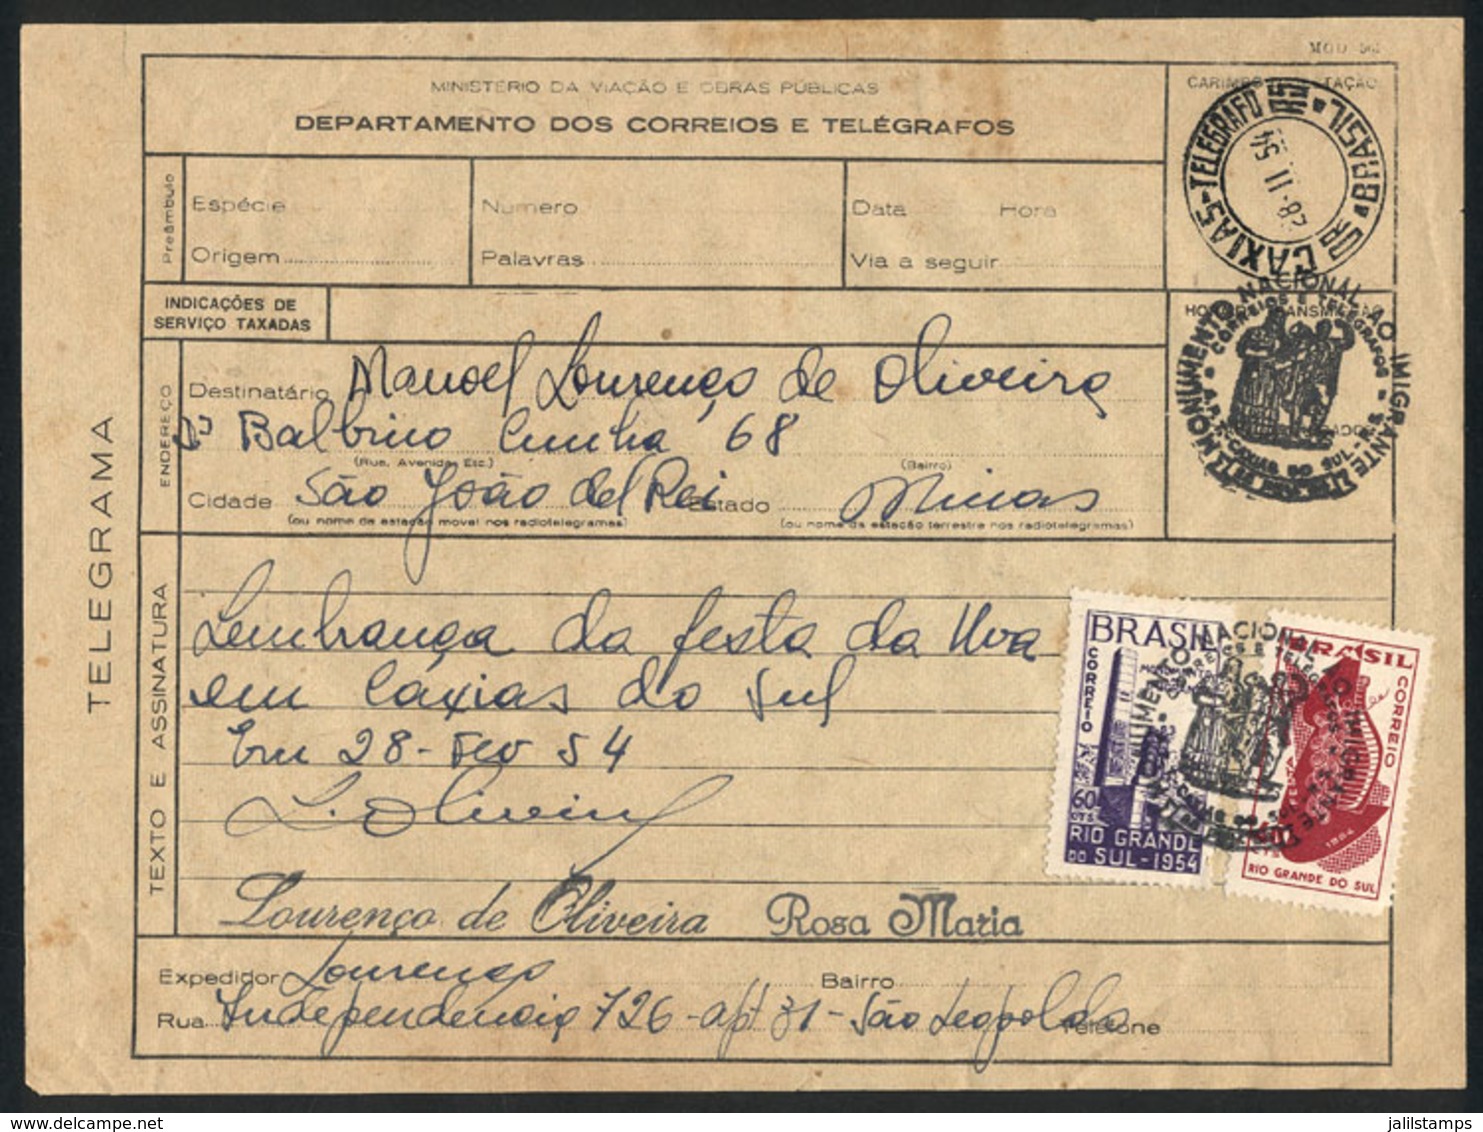 MINISTÉRIO DA VIAÇÃO E OBRAS PÚBLICAS
DEPARTAMENTO DOS CORREIOS E TELÉGRAFOS
CAXIAS-TELEGRAFO
BRASIL
28. II. 54
Preâmbulo
Espécie
Número
Data Hora
Origem
Palavras
Via a seguir
INDICAÇÕES DE
SERVIÇO TAXADAS
MONUMENTO NACIONAL AO IMIGRANTE
CORREIOS E TELEGRAFOS
CAXIAS DO SUL - R.S.
TELEGRAMA
ENDEREÇO
Destinatário Manoel Lourenço de Oliveira
Balbino Cunha 68
(Rua, Avenida, Etc.) (Bairro)
Cidade São João del Rei Estado Minas
(ou nome da estação movel nos radiotelegramas) (ou nome da estação terrestre nos radiotelegramas)
TEXTO E ASSINATURA
Lembrança da festa da Uva
em Caxias do Sul
Em 28-Fev 54
L. Oliveira
BRASIL
CORREIO
60
CTS.
RIO GRANDE
DO SUL-1954
BRASIL
CORREIO
1954
RIO GRANDE DO SUL
MONUMENTO NACIONAL AO IMIGRANTE
CORREIOS E TELEGRAFOS
CAXIAS DO SUL
Lourenço de Oliveira Rosa Maria
Expedidor Lourenço Bairro
Rua Independencia 726-apt 31-São Leopoldo Telefone
jalilstamps